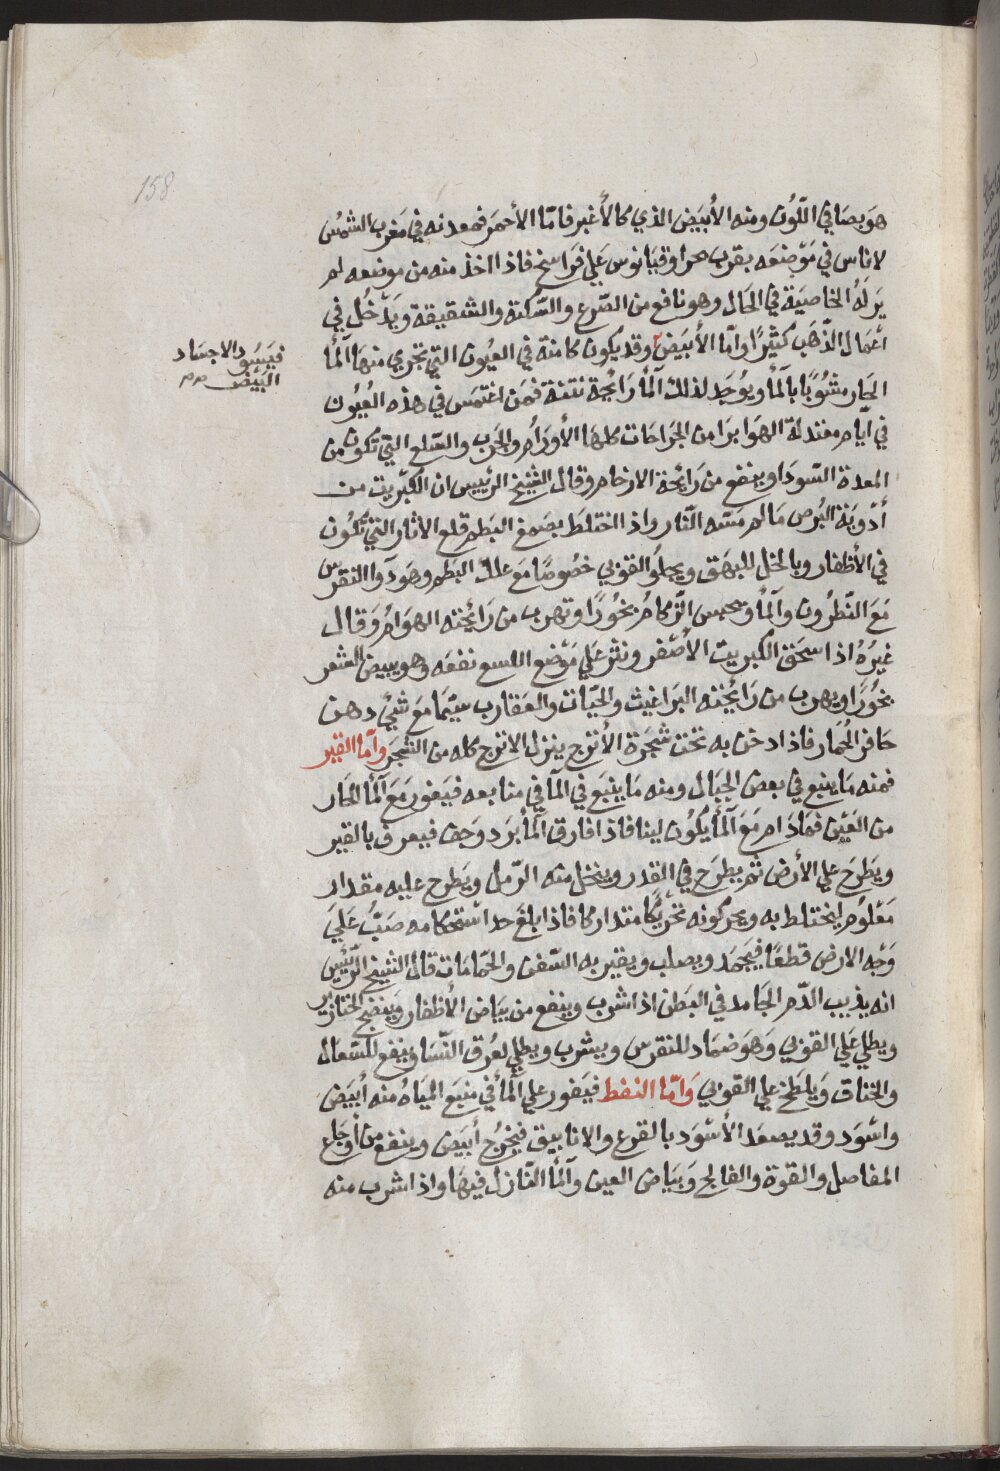 158
هو بصافي اللّون ومنه الأبيَض الذي كالأغبر فامّا الأحمَر فمعدنه في مَغرب الشمس
لاناس في مَوْضِعَه بقرب بحر اوقيَانوس عَلي فرَاسخ فاذا اخذ منه من موضعه لم
يرَ لهُ الخاصيَة في الحَال وهو نافع من الصّرع والسّكتة والشقيقة ويَدْخُل في
اعَمال الذّهَب كثيرًا وامّا الأبيَض وقد يكون كامنة في العيُون التي تجري منها المأ
فيسَوّد الاجسَاد
البُيّض صح
الحَار مشوُبًا بالمأ ويوُجَد لذلك المأ رَايحة نتنة فمَن اغتمَس في هذه العُيُون
في ايّام معتدلة الهوَا برَا من الجرَاحَات كلهَا الأورَام والجَرب والسّلع التي تكُون من
المعدة السّودَا وينفع من رَائحة الارحام وقال الشيخ الرئيس ان الكبريت من
أدْويَة البُرص مَا لم مَسّه النّار واذا اختلَط بصَمغ البطم قلع الاثار التي تكُون
في الأظفار وبالخل للبهَق ويجلوُ القوبي خصُوصًا مَع علك البَطم وهوَ دوَا النقرس
مَعَ النّطرُون والمأ ويحبس الزّكام بُخُورًا وتهرب من رَائِحته الهوَام وَقال
غيرُهُ اذا سحَق الكبريت الأصْفر ونثر عَلي مَوْضع اللسع نفعَه وهو يبيض الشعر
بخُورًا ويهرب من رَائِحته البرَاغيث والحيّات والعَقارب سيّمَا مَع شَئ دهن
حَافر الحمار فاذا دخن به تحت شجَرة الأترج ينزل الاترج كله من الشّجَر وَامّا القير
فمنه مَا ينبع في بعض الجبَال ومنه مَا ينبَع في المأ في منابعه فيَفور مَعَ المأ الحار
من العَيْن فمَادَام مَعَ المأ يكُون لينا فاذا فارق المأ برَد وَجف فيعرف بالقير
ويَطرَح علي الأرض ثم يطرَح في القدر وينخل منه الرّمل ويَطرح عليه مقدار
مَعْلوُم ليختلط به ويحركونه تحريكًا متداركا فاذا بلغ حد استحكامه صَبُّ عَليَ
وَجْه الارض قطعًا فيَجمَد ويصلب ويقير به السّفن والحمّامَات قال الشيخ الرّئيس
انه يذيب الدّم الجَامد في البَطن اذا شرب وينفع من بيَاض الأظفار ويَنضج الخنازير
ويطلي عَلي القوبي وَهوَ ضمَاد للنقرس ويشرب ويطلي لعُرق النّسَا وينفع للسّعال
والخناق وَيلطخ علي القوبي وَامّا النفط فيَفور علي المأ في منبَع الميَاه منه أبيَض
واسْود وقد يصعَد الأسْوَد بالقرع والانابيق فيَخرُج أبيَض وينفع من أوجَاع
المفاصل والقوة والفالج وَبيَاض العين والمأ النّازل فيهَا واذا شرب منه